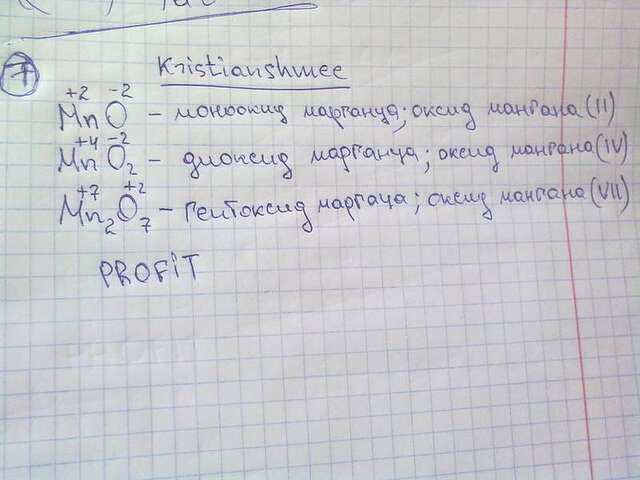 7
Kristianshmee
+2 -2
MnO – монооксид марганца; оксид мангана (II)
+4 -2
MnO2 – диоксид марганца; оксид мангана (IV)
+7 +2
Mn2O7 – гептоксид маргаца; оксид мангана (VII)
PROFiT